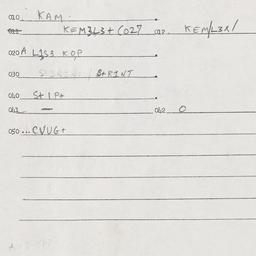 010 KAM.
011 KEM3L3+ C027 012. KEM/L3X/
020 A L1S3 KOP
030 / B+RINT
040 S+IP+
041 — 042 0
050 ... CVUG+